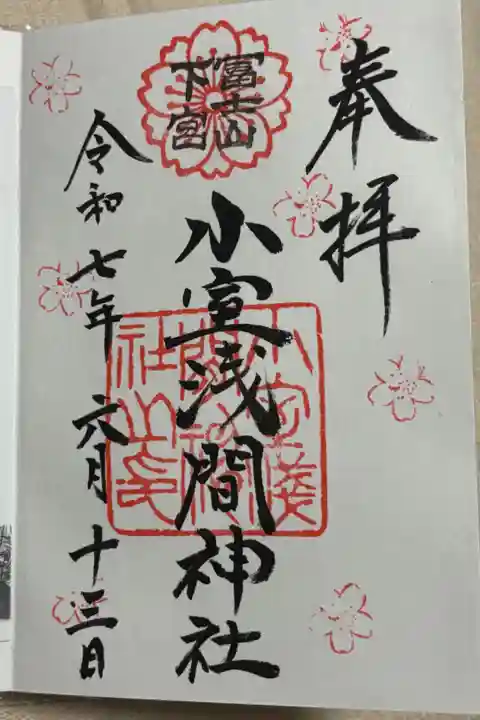 奉拝
冨士山
下宮
小室浅間神社
小室浅間神社之印
令和七年六月十三日